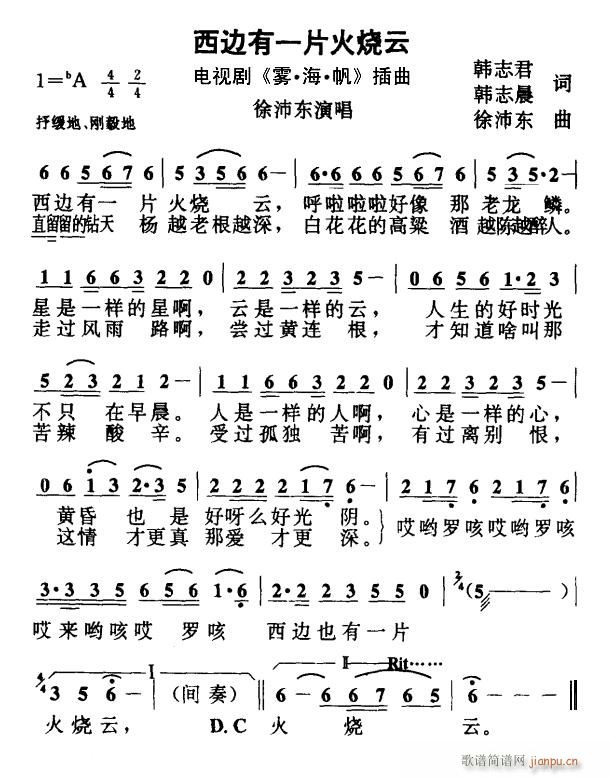 西边有一片火烧云
1=ᵇA 4/4 2/4
电视剧《雾·海·帆》插曲
徐沛东演唱
韩志君
韩志晨 词
徐沛东 曲
抒缓地、刚毅地
6 6 5 6 7 6 | 5 3 5 6 - | 6·6 6 6 5 6 7 6 | 5 3 5·2 - |
西边有一 片火烧 云, 呼啦啦啦好像 那 老龙 鳞。
直留留的钻天 杨 越老根越深, 白花花的高粱 酒 越陈越醉人。
1 1 6 6 3 2 2 0 | 2 2 3 2 3 5 - | 0 5 2 5 6 1·2 3 |
星是一样的星啊, 云是一样的云, 人生的好时光
走过风雨 路啊, 尝过黄连 根, 才知道啥叫那
5 2 3 2 1 2 - | 1 1 6 6 3 2 2 0 | 2 2 3 2 3 5 - |
不只 在早晨。 人是一样的人啊, 心是一样的心,
苦辣 酸辛。 受过孤独 苦啊, 有过离别 恨,
0 6 1 3 2·3 5 | 2 2 1 2 3 1 7 6 | 2 1 7 6 2 1 7 6 |
黄昏 也 是 好呀么好光 阴。 哎哟罗咳哎哟罗咳
这情 才更真 那爱 才更 深。
3·3 3 5 6 5 6 1 | 2·2 2 3 5 0 | 2/4 (5 - ) |
哎来哟咳哎 罗咳 西边也有一片
I II Rit……
4/4 3 5 6 - | (间奏) | 6 - 6 6 7 6 5 | 6 - - - ‖
火烧云, D.C 火 烧 云。
歌谱简谱网
jianpu.cn